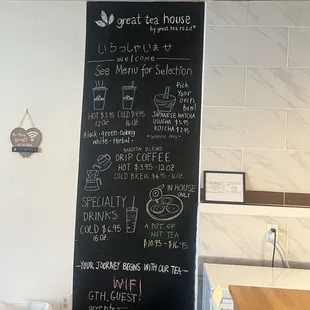 great tea house
by great tea road
いらっしゃいませ
welcome
See Menu for Selection
HOT $3.95
12OZ
COLD $4.95
16OZ
Pick
Your
own
Bowl
JAPANESE MATCHA
USUCHA $5.95
KOICHA
Black-green-Oolong
white-Herbal
BLEND
DRIP COFFEE
HOT $3.95 - 12OZ
COLD BREW
SPECIALTY
DRINKS
COLD $6.95
16OZ
IN HOUSE
ONLY
A POT OF
HOT TEA
$10.95 - $16.95
-YOUR JOURNEY BEGINS WITH OUR TEA-
WIFI
GTH_GUEST!